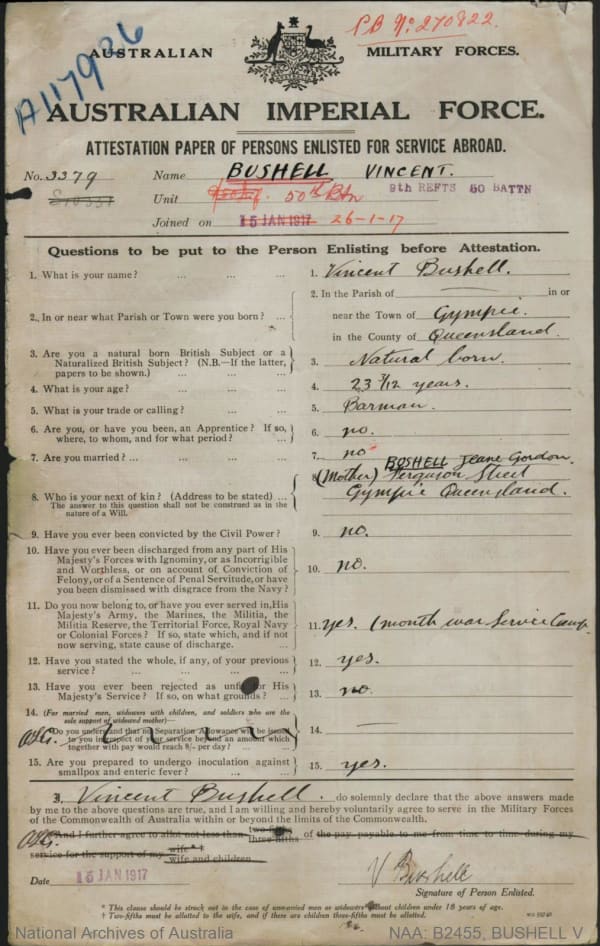 PB No 270822.
A117906
AUSTRALIAN MILITARY FORCES.
AUSTRALIAN IMPERIAL FORCE.
ATTESTATION PAPER OF PERSONS ENLISTED FOR SERVICE ABROAD.
No. 3379 Name BUSHELL VINCENT.
Unit 50th Btn 9th REFTS 50 BATTN
Joined on 15 JAN 1917 26-1-17
Questions to be put to the Person Enlisting before Attestation.
1. What is your name? ... ... ... 1. Vincent Bushell.
2. In or near what Parish or Town were you born? ... 2. In the Parish of — in or
near the Town of Gympie.
in the County of Queensland.
3. Are you a natural born British Subject or a
Naturalized British Subject? (N.B.—If the latter,
papers to be shown.) ... ... ... 3. Natural born
4. What is your age? ... ... ... 4. 23 7/12 years.
5. What is your trade or calling? ... ... 5. Barman.
6. Are you, or have you been, an Apprentice? If so,
where, to whom, and for what period? ... ... 6. no.
7. Are you married? ... ... ... 7. no
8. Who is your next of kin? (Address to be stated) ... 8. (Mother) BUSHELL Jeane Gordon.
Ferguson Street
Gympie Queensland.
The answer to this question shall not be construed as in the
nature of a Will.
9. Have you ever been convicted by the Civil Power? 9. no.
10. Have you ever been discharged from any part of His
Majesty's Forces with Ignominy, or as Incorrigible
and Worthless, or on account of Conviction of
Felony, or of a Sentence of Penal Servitude, or have
you been dismissed with disgrace from the Navy? 10. no.
11. Do you now belong to, or have you ever served in, His
Majesty's Army, the Marines, the Militia, the
Militia Reserve, the Territorial Force, Royal Navy
or Colonial Forces? If so, state which, and if not
now serving, state cause of discharge. ... 11. yes. 1 month war Service Camp.
12. Have you stated the whole, if any, of your previous
service? ... ... ... ... 12. yes.
13. Have you ever been rejected as unfit for His
Majesty's Service? If so, on what grounds? ... 13. no.
14. (For married men, widowers with children, and soldiers who are the
sole support of widowed mother)—
Do you understand that no Separation Allowance will be issued
to you in respect of your service beyond an amount which
together with pay would reach 8/- per day? ... ... 14. —
15. Are you prepared to undergo inoculation against
smallpox and enteric fever? ... ... 15. yes.
I, Vincent Bushell. do solemnly declare that the above answers made
by me to the above questions are true, and I am willing and hereby voluntarily agree to serve in the Military Forces
of the Commonwealth of Australia within or beyond the limits of the Commonwealth.
*And I further agree to allot not less than two-fifths three-fifths of the pay payable to me from time to time during my
service for the support of my wife * †
wife and children
Date 15 JAN 1917 V Bushell
Signature of Person Enlisted.
* This clause should be struck out in the case of unmarried men or widowers without children under 18 years of age.
† Two-fifths must be allotted to the wife, and if there are children three-fifths must be allotted.
National Archives of Australia NAA: B2455, BUSHELL V